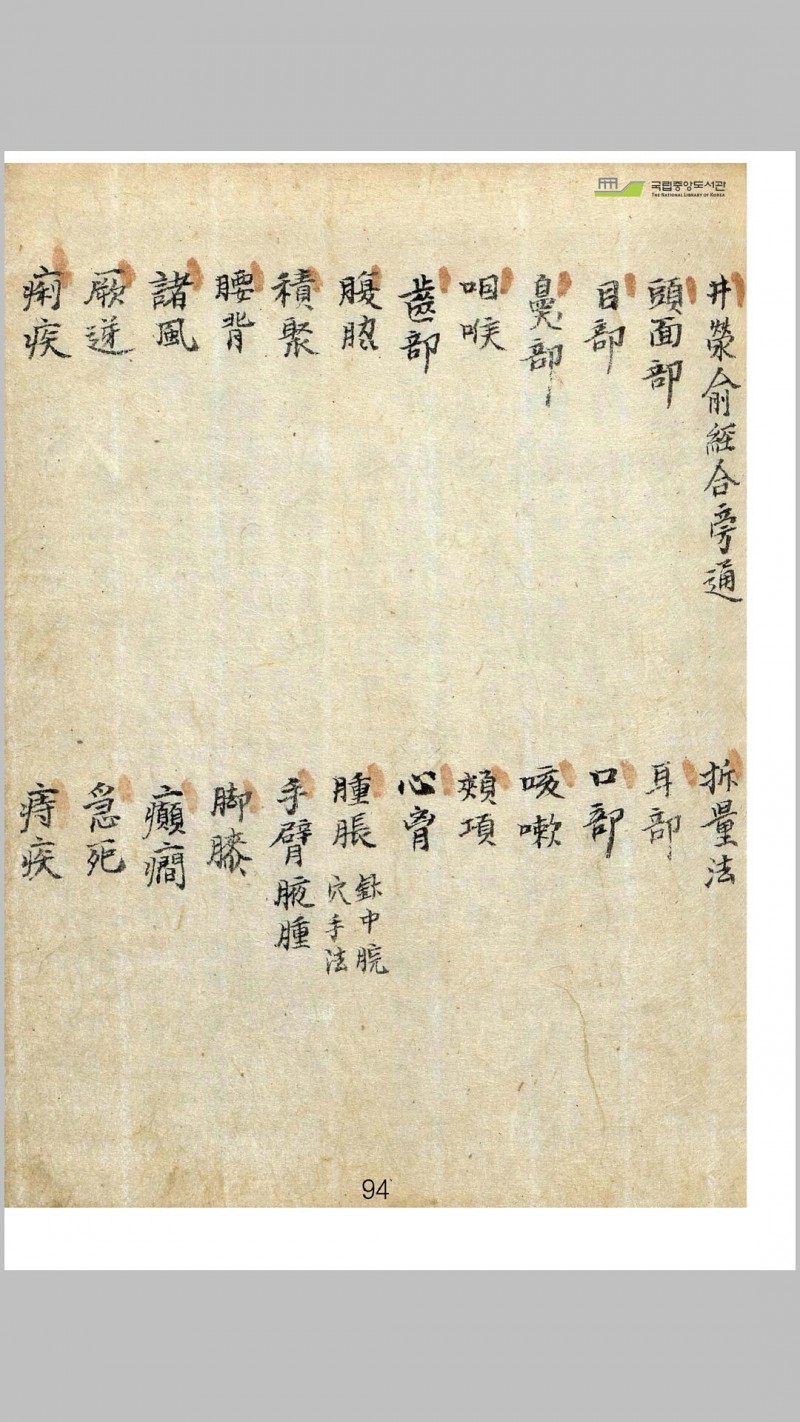 국립중앙도서관
THE NATIONAL LIBRARY OF KOREA
井滎俞經合旁通
折量法
頭面部
耳部
目部
口部
鼻部
咳嗽
咽喉
頰項
齒部
心胷
腹脇
腫脹
針中脘
穴手法
積聚
手臂腋腫
腰背
脚膝
諸風
癲癎
厥逆
急死
痢疾
痔疾
94